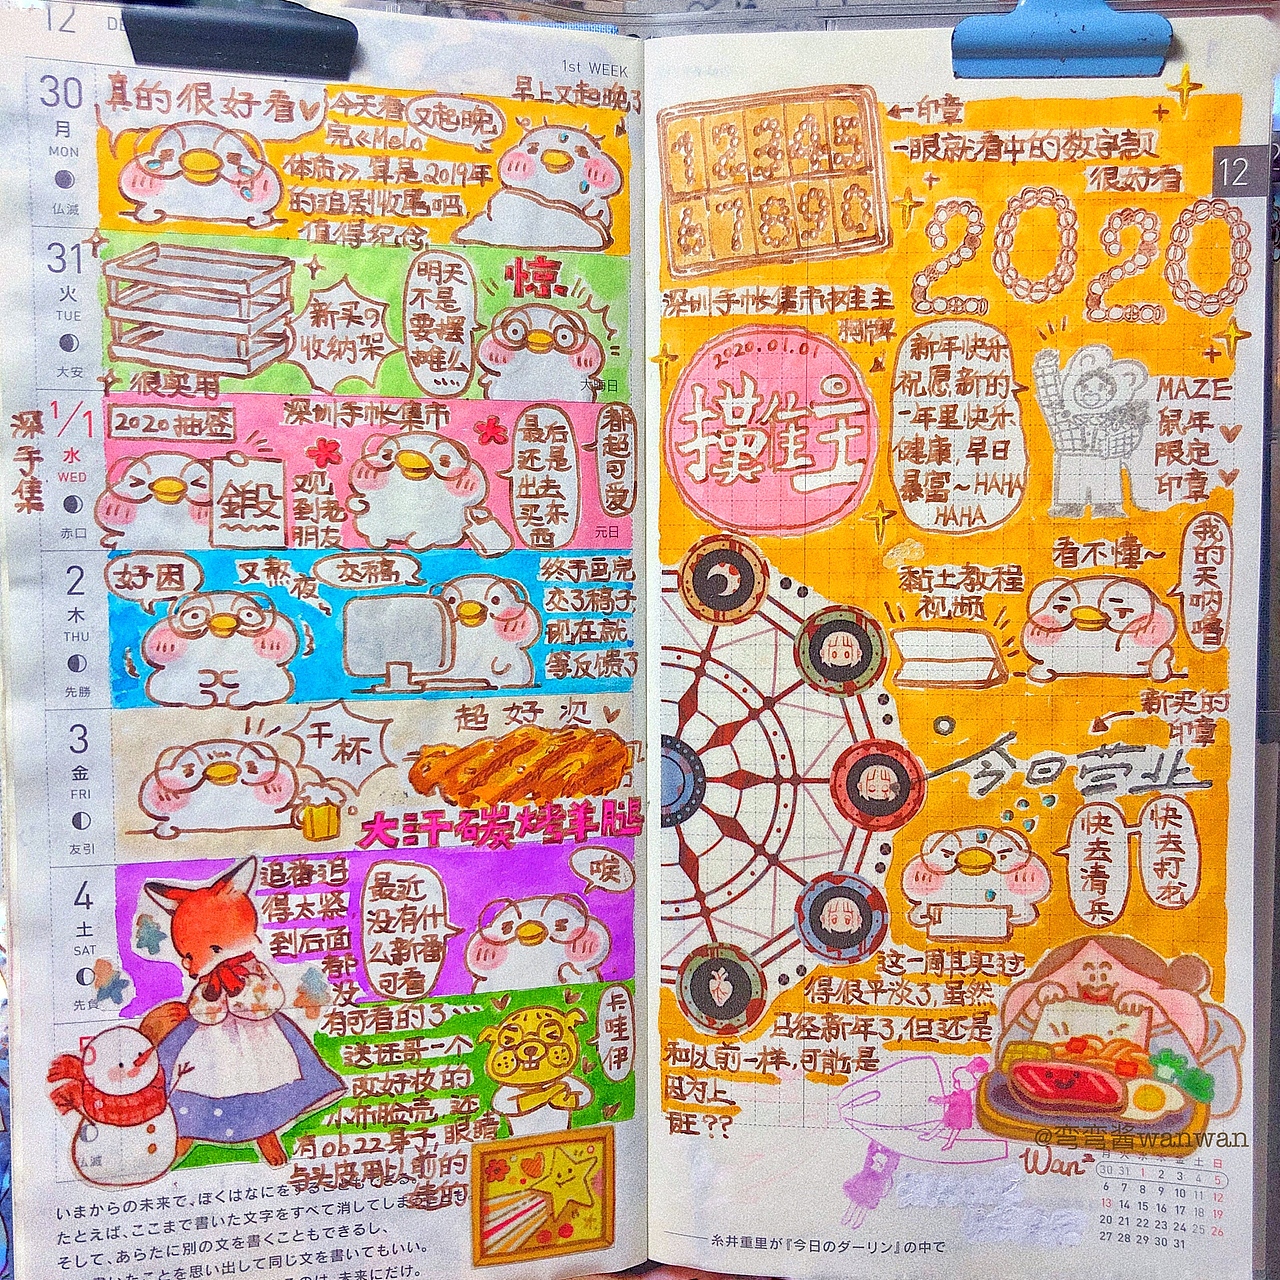 12
1st WEEK
30
月
MON
仏滅
真的很好看
今天看
完《Melo
体质》,算是2019年
的追剧收尾吧
值得纪念
又起晚
早上又起晚了
31
火
TUE
大安
很实用
新买の
收纳架
明天
不是
要摆
摊么
惊
大晦日
深手集
1/1
水
WED
赤口
2020抽签
深圳手帐集市
鍛
观
到老
朋友
最后
还是
出去
买东
西
都超可爱
元日
2
木
THU
先勝
好困
又熬
夜
交稿
终于画完
交了稿子
现在就
等反馈了
3
金
FRI
友引
干杯
超好次
大汗碳烤羊腿
4
土
SAT
先負
追番追
得太紧
到后面
都
没
有可看的了…
最近
没有什
么新番
可看
唉
5
仏滅
送证哥一个
改好妆的
小布脸壳,还
有ob22身子,眼睛
与头皮用以前的
走的
卡哇伊
いまからの未来で、ぼくはなにをすることもできる。
たとえば、ここまで書いた文字をすべて消してしま
そして、あらたに別の文を書くこともできるし、
たことを思い出して同じ文を書いてもいい。
未来にだけ。
12
1 2 3 4 5
6 7 8 9 0
←印章
一眼就看中的数字款
很好看
2020
深圳手帐集市摊主
胸牌
2020.01.01
摸摊主
新年快乐
祝愿新的
一年里快乐
健康,早日
暴富~HAHA
HAHA
MAZE
鼠年
限定
印章
黏土教程
视频
看不懂~
我的天呐噜
新买的
印章
今日营业
快去清兵
快去打龙
这一周其实过
得很平淡了,虽然
已经新年了,但还是
和以前一样,可能是
因为上
班??
@弯弯酱wanwan
Wan²
30 31 1 2 3 4 5
6 7 8 9 10 11 12
13 14 15 16 17 18 19
20 21 22 23 24 25 26
27 28 29 30 31
糸井重里が『今日のダーリン』の中で